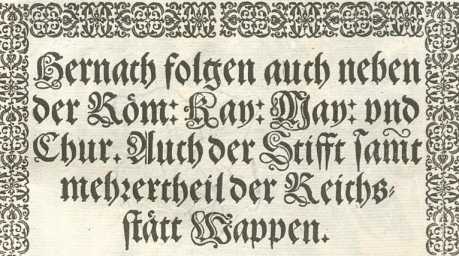 Hernach folgen auch neben
der Röm: Kay: May: vnd
Chur. Auch der Stifft samt
mehrertheil der Reichs⸗
stätt Wappen.